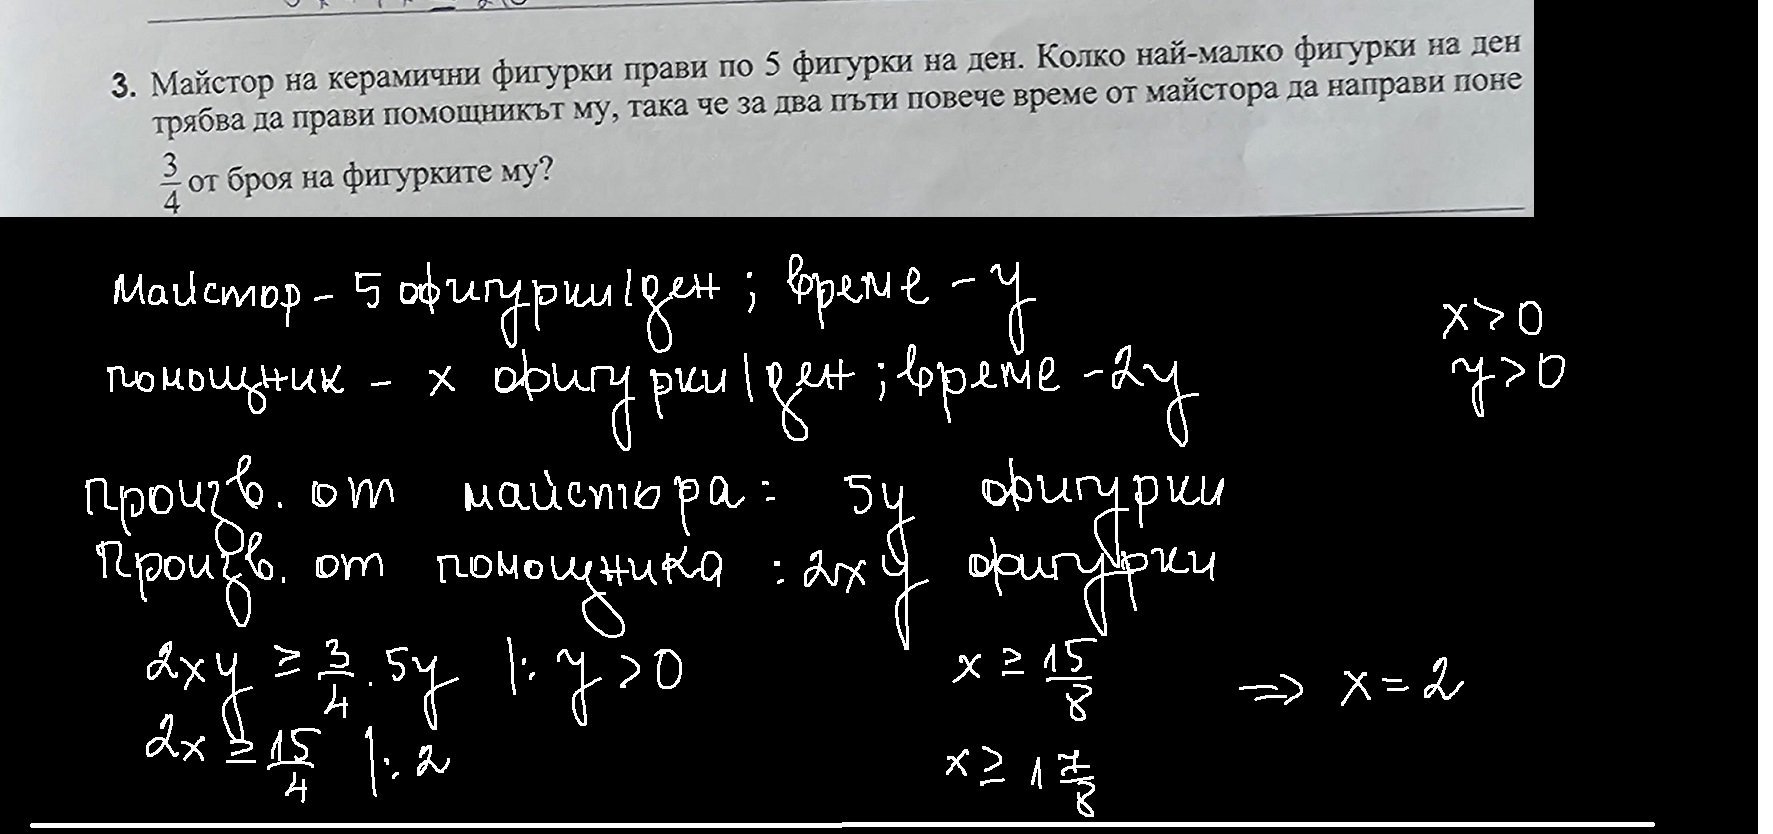 3. Майстор на керамични фигурки прави по 5 фигурки на ден. Колко най-малко фигурки на ден
трябва да прави помощникът му, така че за два пъти повече време от майстора да направи поне
3/4 от броя на фигурките му?
Майстор - 5 фигурки/ден ; време - y
x > 0
помощник - x фигурки/ден ; време - 2y
y > 0
Произв. от майстора : 5y фигурки
Произв. от помощника : 2xy фигурки
2xy ≥ 3/4 . 5y |: y > 0
x ≥ 15/8 => x = 2
2x ≥ 15/4 |: 2
x ≥ 1 7/8